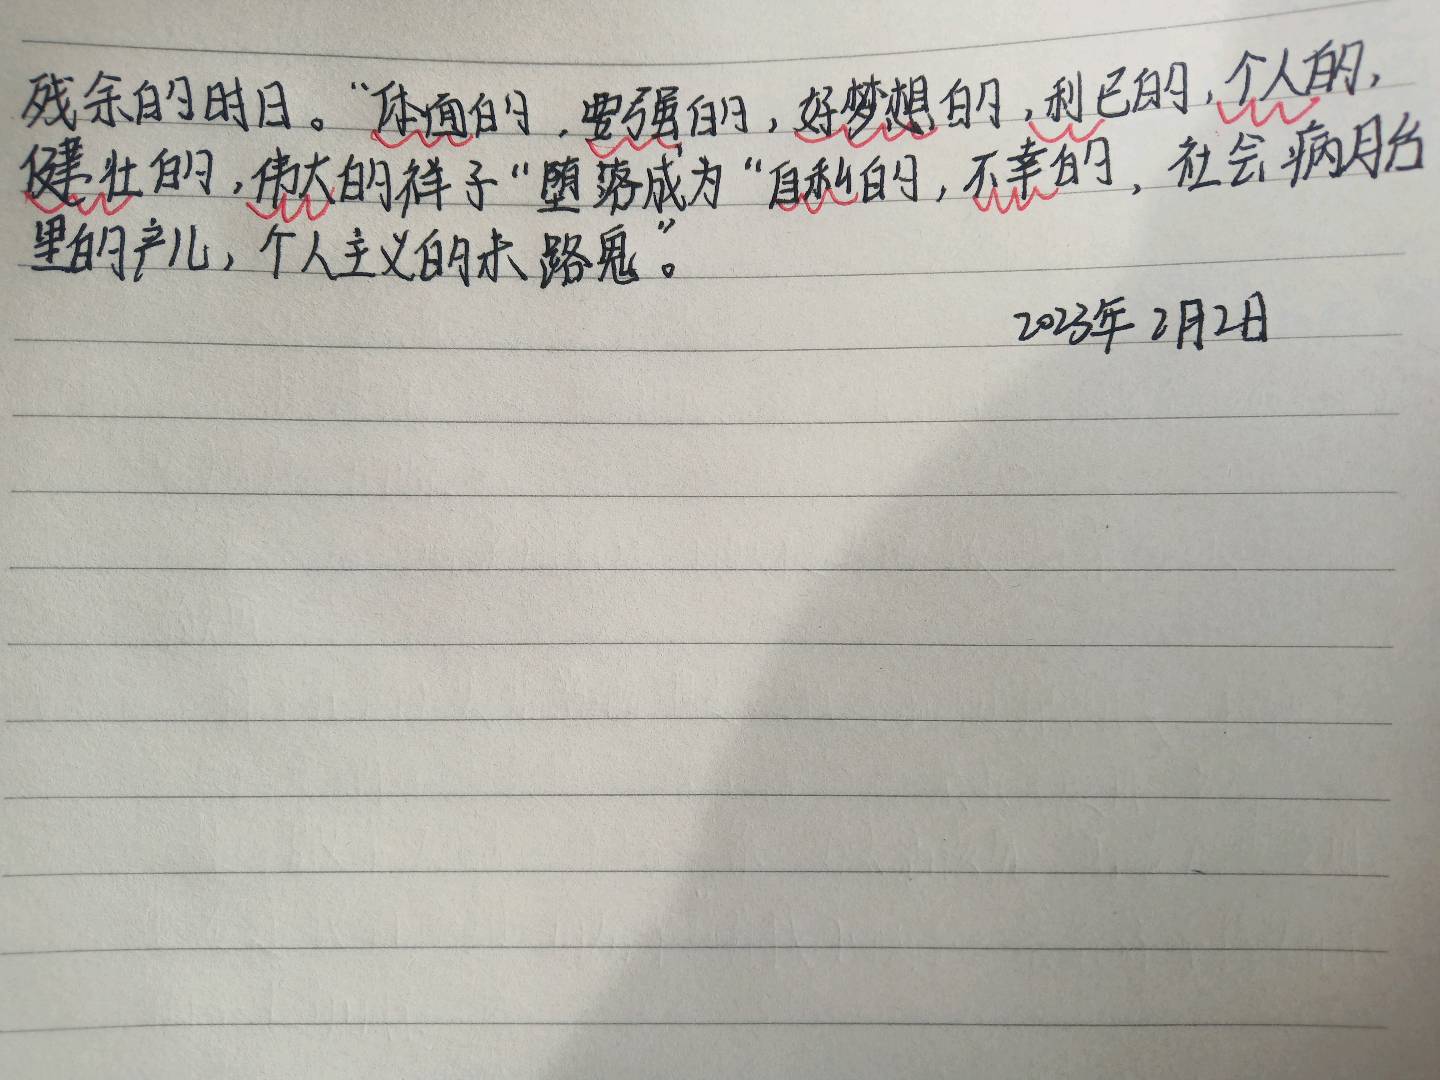 残余的时日。“体面的，要强的，好梦想的，利己的，个人的，
健壮的，伟大的祥子“堕落成为“自私的，不幸的，社会病胎
里的产儿，个人主义的末路鬼”。
2023年2月2日